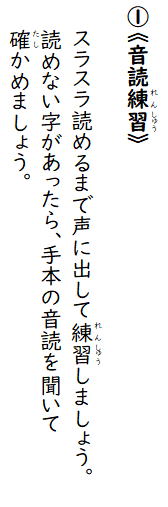 ①《音読練習》
スラスラ読めるまで声に出して練習しましょう。
読めない字があったら、手本の音読を聞いて
確かめましょう。